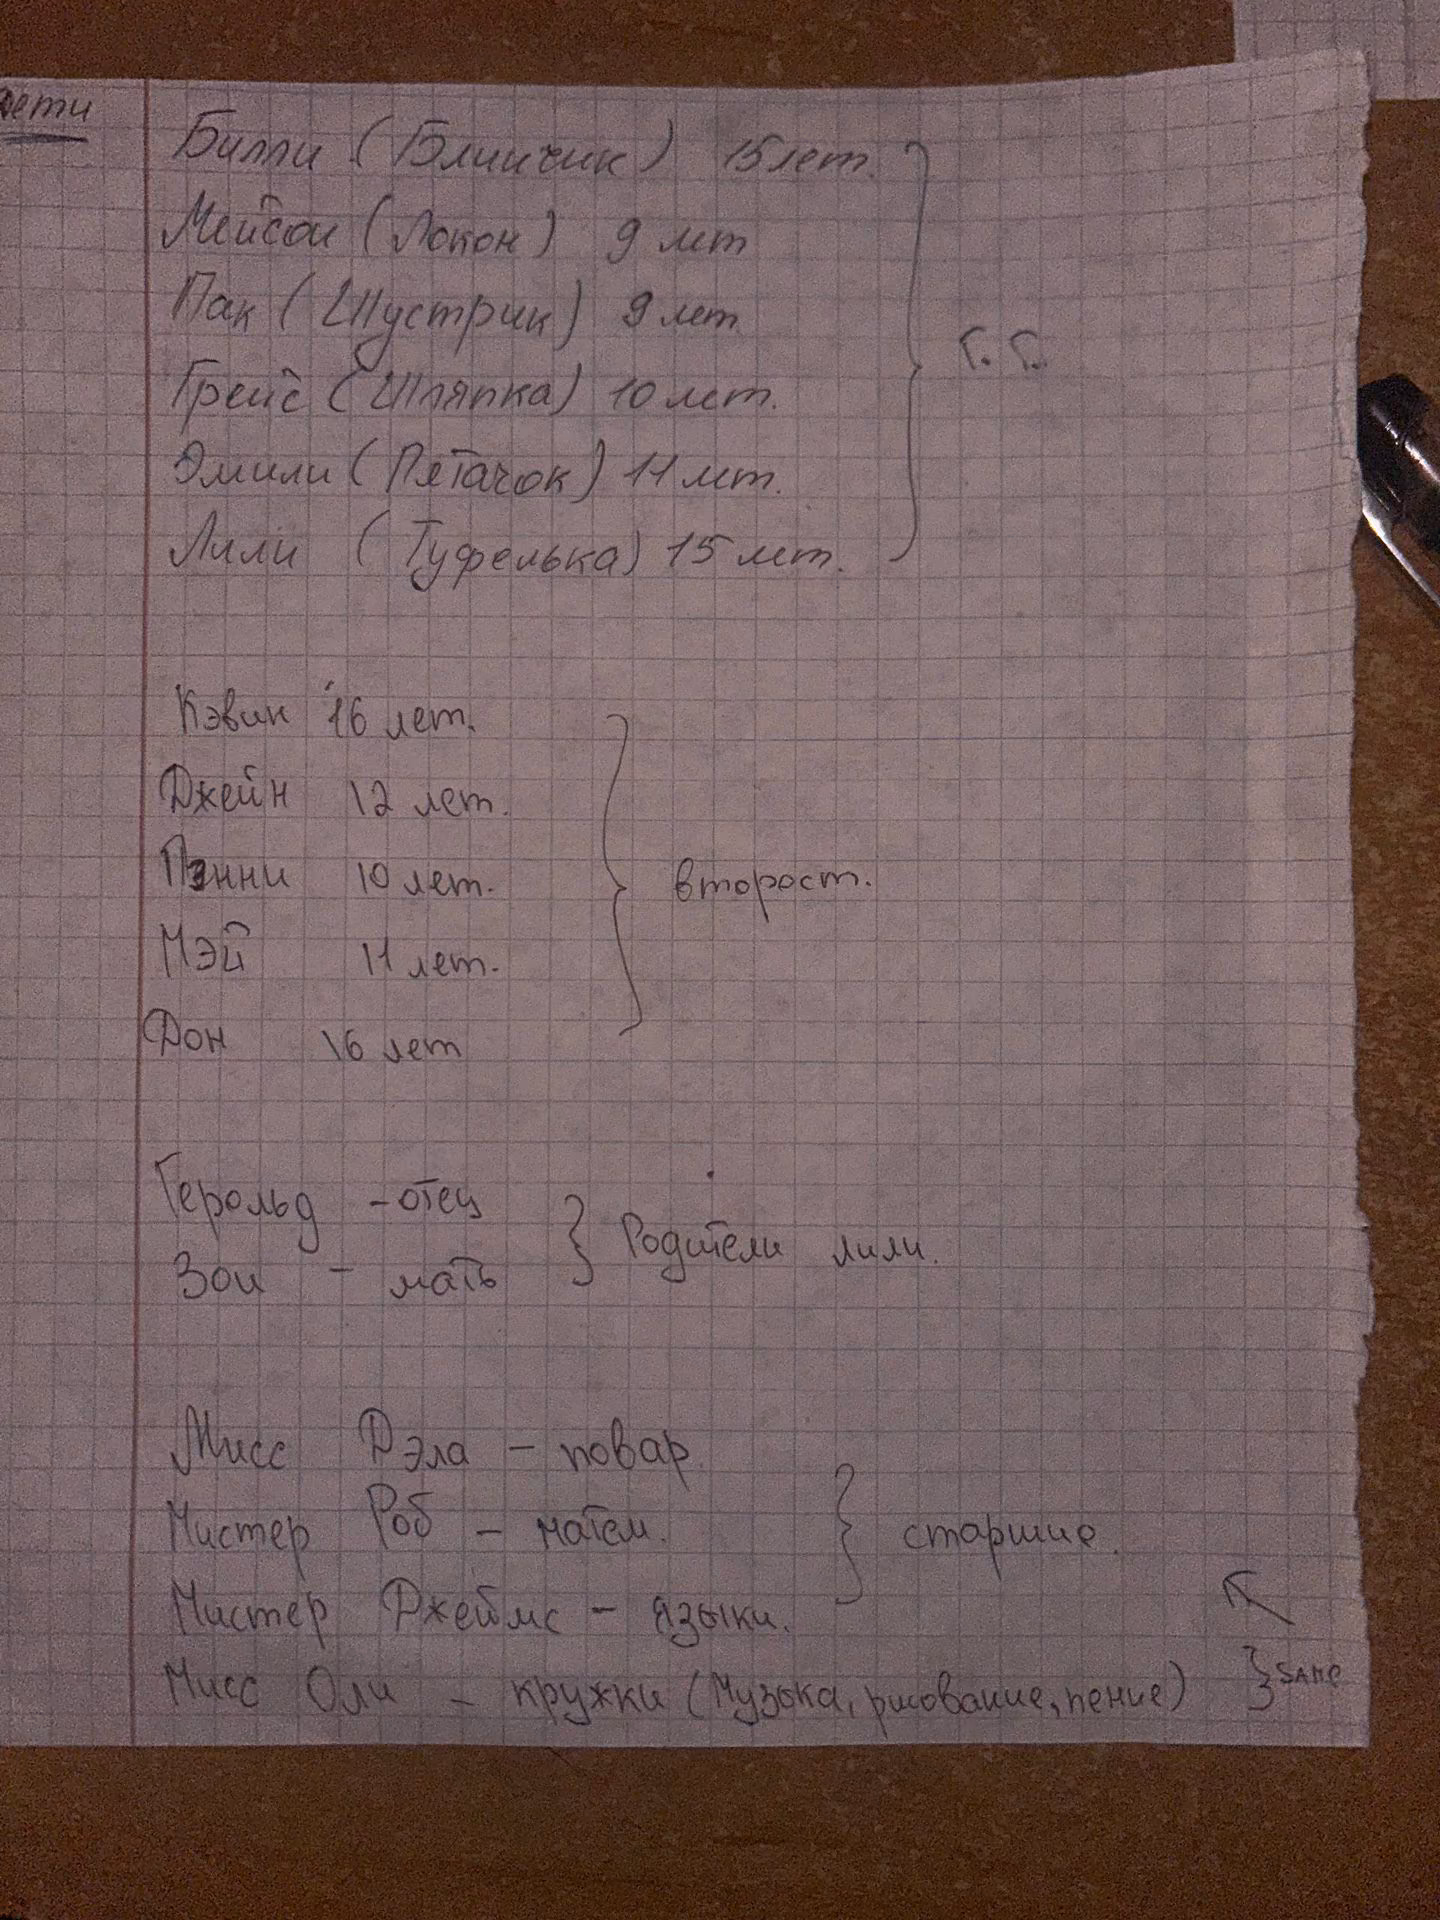 дети
Билли (Блинчик) 15 лет.
Мейсон (Локон) 9 лет
Пак (Шустрик) 9 лет
Г.Г.
Грейс (Шляпка) 10 лет.
Эмили (Пятачок) 11 лет.
Лили (Туфелька) 15 лет.
Кэвин 16 лет.
Джейн 12 лет.
Пэнни 10 лет. второст.
Мэй 11 лет.
Дон 16 лет
Герольд - отец
Родители лили.
Зои - мать
Мисс Дэла - повар.
Мистер Роб - матем. старшие.
Мистер Джеймс - языки.
Мисс Оли - кружки (музыка, рисование, пение) SAME